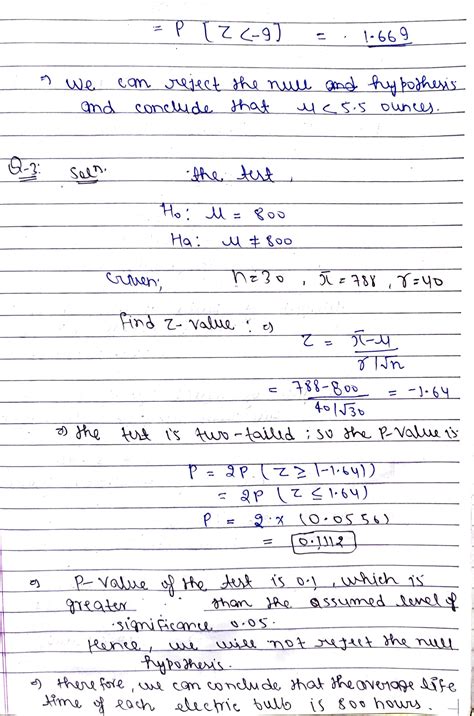 = P [Z <-9] = . 1.669
⇒ we can reject the null and hypothesis
and conclude that μ < 5.5 ounces.
Q-3: Solⁿ. the test,
Ho: μ = 800
Ha: μ ≠ 800
Given, n=30 , x̄ = 788 , σ=40
find Z-value : ⇒
Z = x̄-μ
σ/√n
= 788-800 = -1.64
40/√30
⇒ the test is two-tailed ; so the P-value is
P = 2P. (Z ≥ |-1.64|)
= 2P (Z ≤ 1.64)
P = 2 x (0.0556)
= 0.1112
⇒ P-value of the test is 0.1 , which is
greater than the assumed level of
significance 0.05.
Hence, we will not reject the null
hypothesis.
⇒ therefore, we can conclude that the average life
time of each electric bulb is 800 hours.